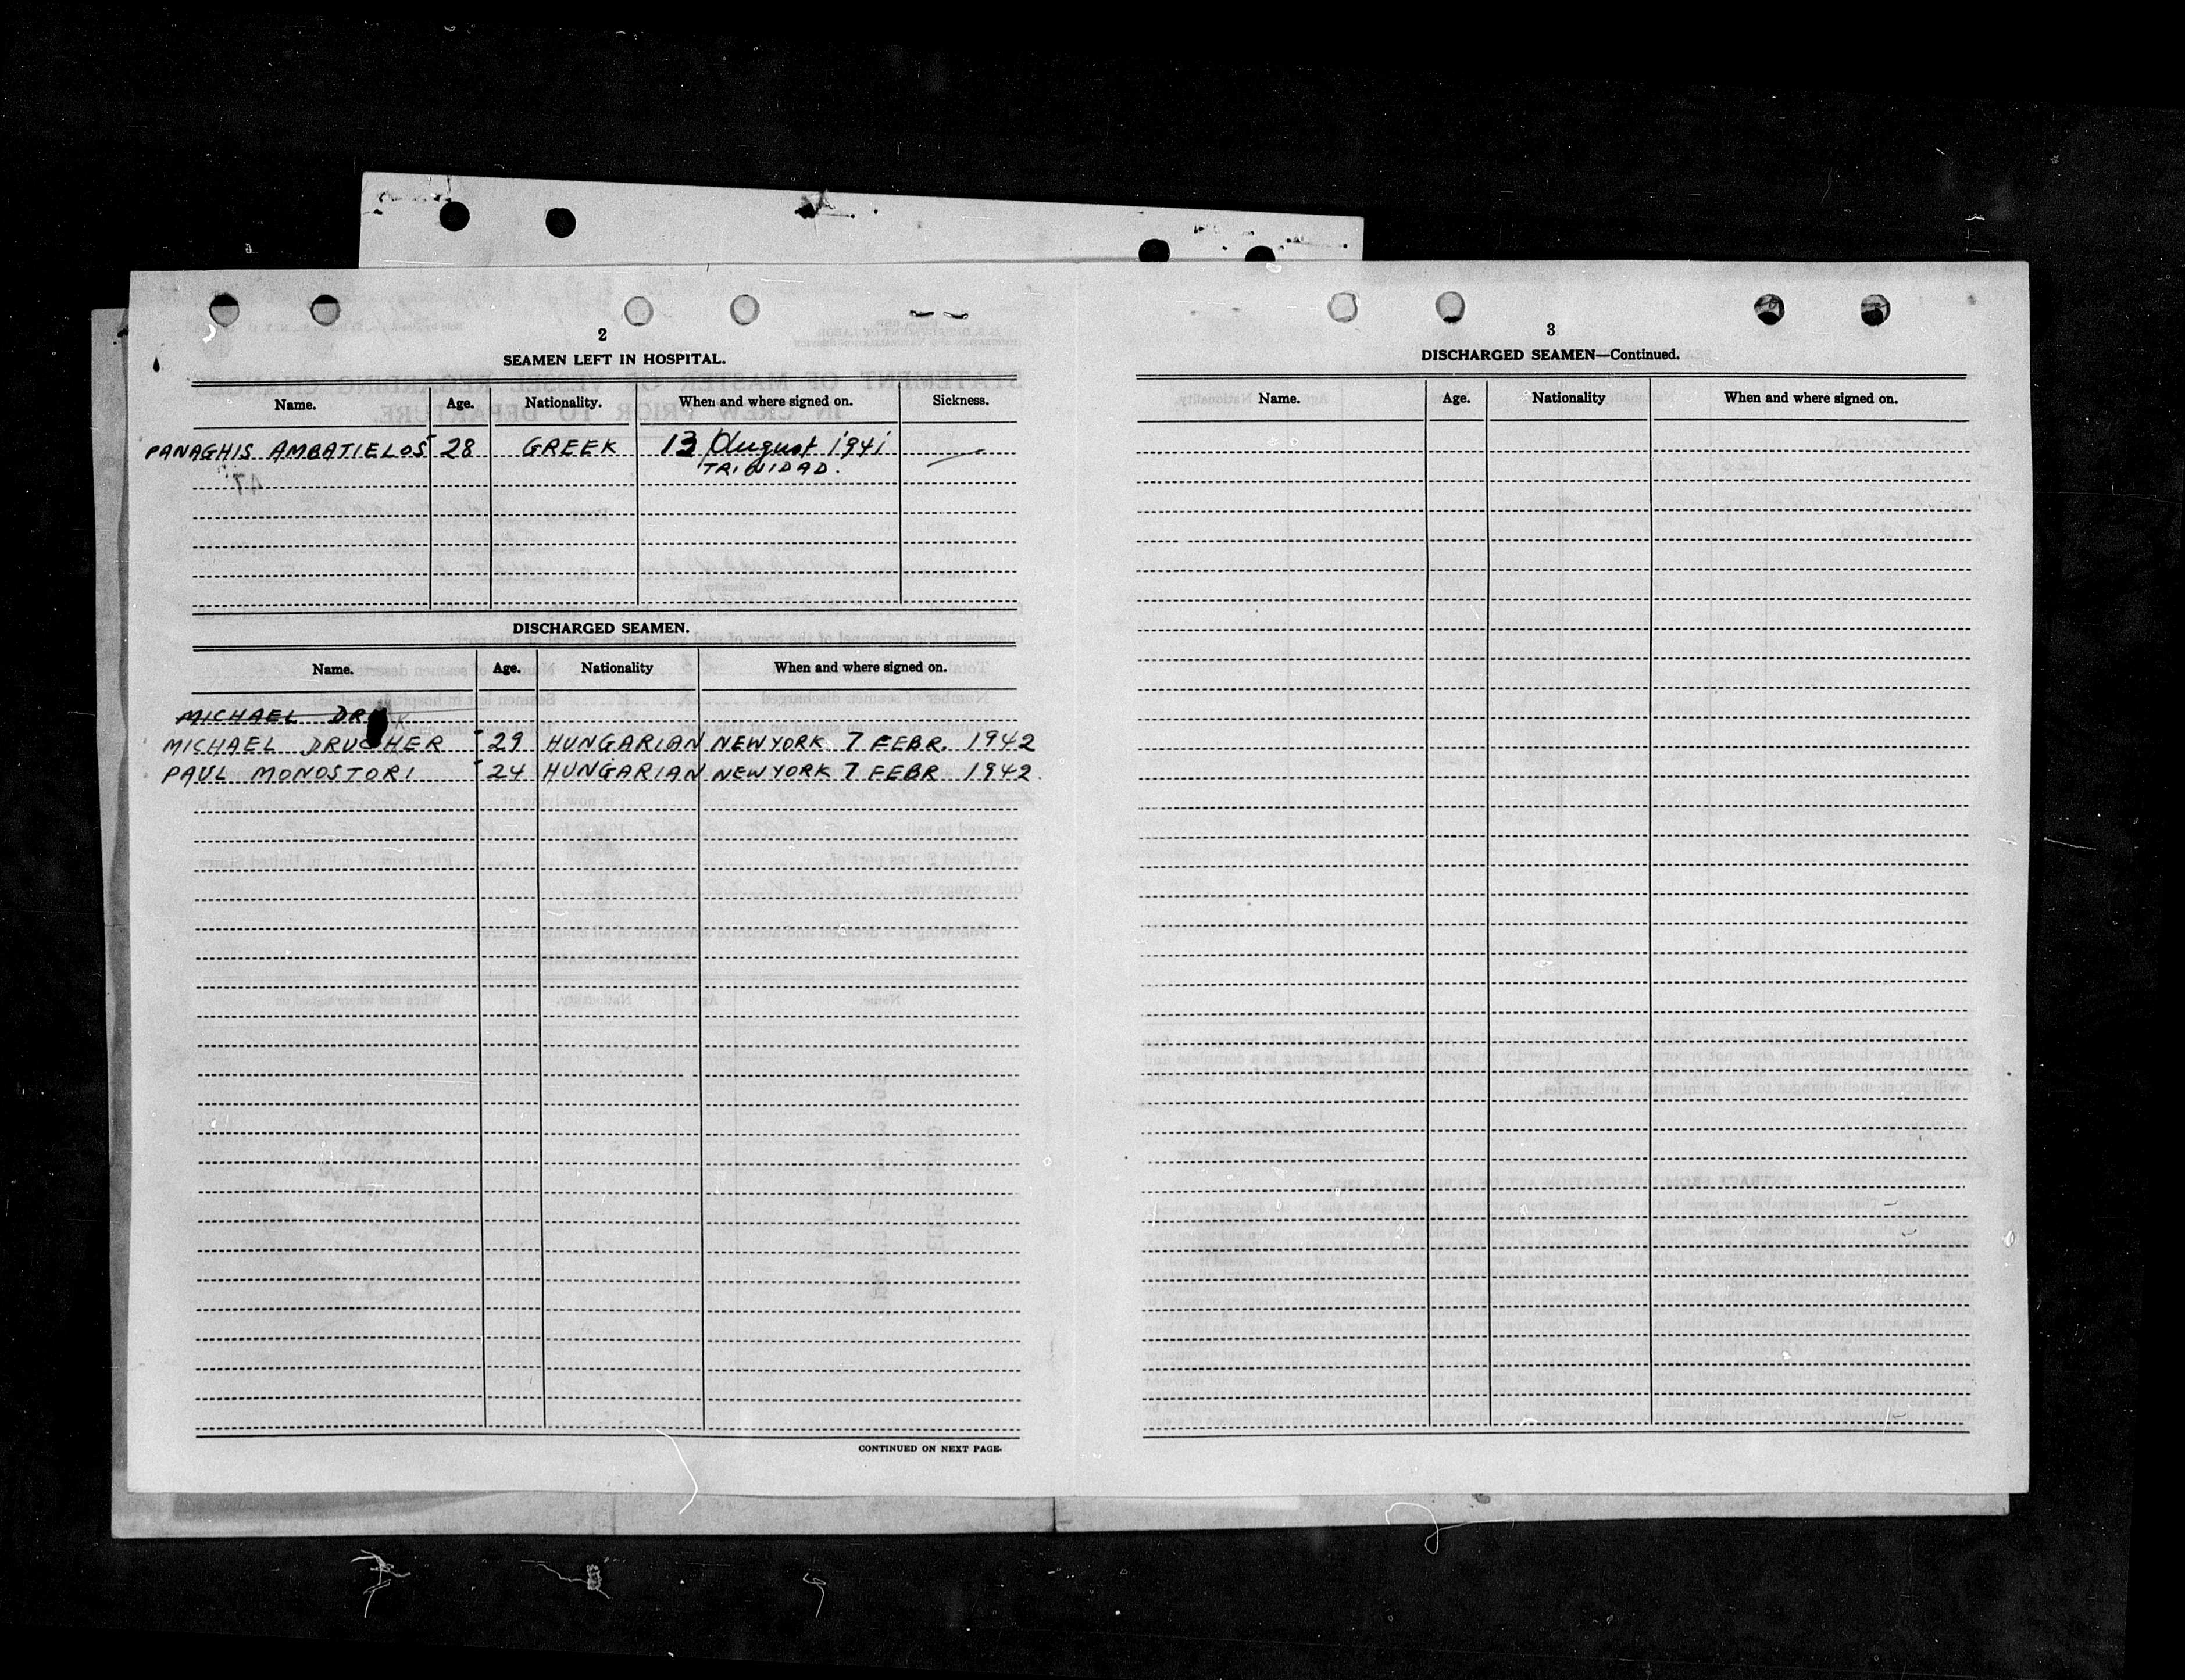 2
SEAMEN LEFT IN HOSPITAL.
Name. Age. Nationality. When and where signed on. Sickness.
PANAGHIS AMBATIELOS 28 GREEK 13 August 1941
TRINIDAD.
DISCHARGED SEAMEN.
Name. Age. Nationality When and where signed on.
MICHAEL
MICHAEL DRUCHER 29 HUNGARIAN NEW YORK 7 FEBR. 1942
PAUL MONOSTORI 24 HUNGARIAN NEW YORK 7 FEBR 1942.
CONTINUED ON NEXT PAGE.
3
DISCHARGED SEAMEN—Continued.
Name. Age. Nationality When and where signed on.